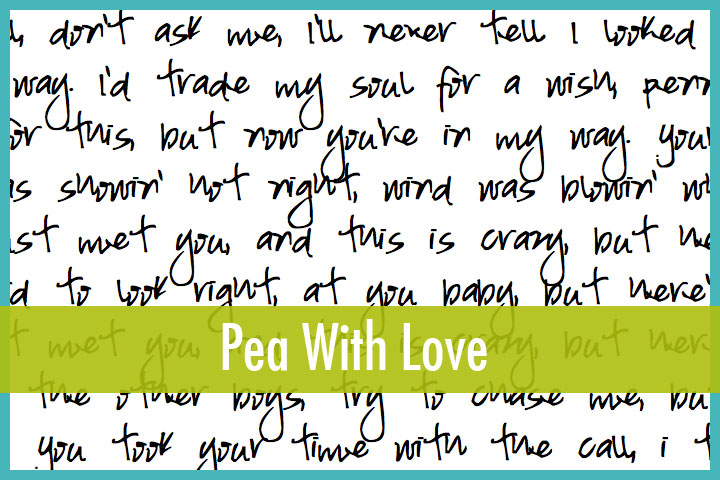 don't ask me, I'll never tell I looked
way. I'd trade my soul for a wish, penn
for this, but now you're in my way. your
s showin' hot night, wind was blowin' w
st met you, and this is crazy, but he
d to look right, at you baby, but here'
t met you, is crazy, but her
Pea With Love
the other boys, try to chase me, bu
you took your time with the call, i t